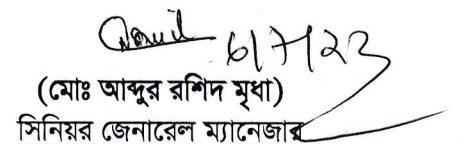 6/7/23
(মোঃ আব্দুর রশিদ মৃধা)
সিনিয়র জেনারেল ম্যানেজার